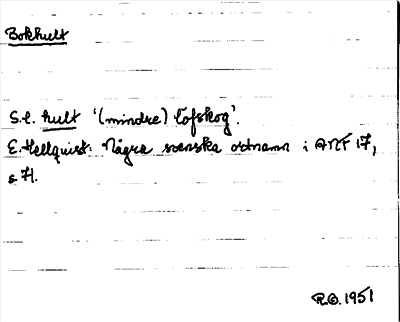 Bokhult
S.e. hult '(mindre) löfskog'.
E. Hellquist: Några svenska ortnamn i ANF 17,
s 71.
R.O. 1951